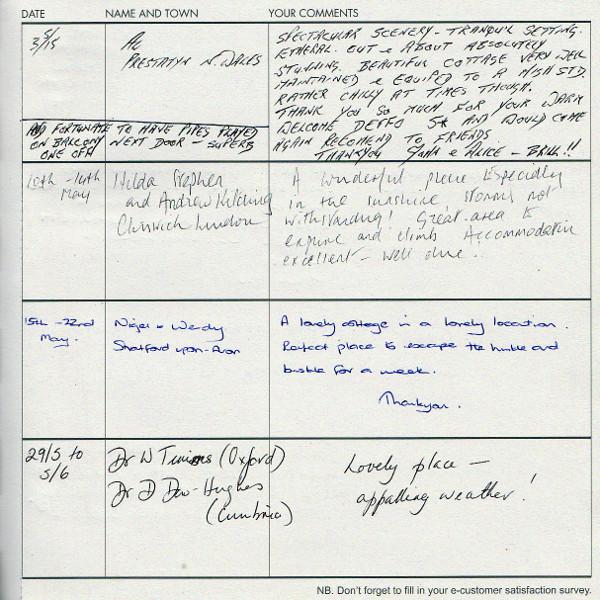 DATE NAME AND TOWN YOUR COMMENTS
3/5/15
AL
PRESTATYN N. WALES
SPECTACULAR SCENERY - TRANQUIL SETTING.
ETHERAL. OUT & ABOUT ABSOLUTELY
STUNNING. BEAUTIFUL COTTAGE VERY WELL
MAINTAINED & EQUIPED TO A HIGH STD.
RATHER CHILLY AT TIMES THOUGH.
THANK YOU SO MUCH FOR YOUR WARM
WELCOME DEFFO 5* AND WOULD COME
AGAIN RECOMEND TO FRIENDS
THANKYOU JOHN & ALICE - BRILL!!
AND FORTUNATE TO HAVE PIPES PLAYED
ON BALCONY NEXT DOOR - SUPERB
ONE OFF
10th - 14th
May
Hilda Stephen
and Andrew Kitching
Chiswick London
A wonderful place Especially
in the sunshine, storms not
withstanding! Great area to
explore and climb Accommodation
excellent - well done.
15th - 22nd
May.
Nigel & Wendy
Stratford upon-Avon
A lovely cottage in a lovely location.
Perfect place to escape the hustle and
bustle for a week.
Thankyou.
29/5 to
5/6
Dr W Timms (Oxford)
Dr D Dew-Hughes
(Cumbria)
Lovely place -
appalling weather!
NB. Don't forget to fill in your e-customer satisfaction survey.